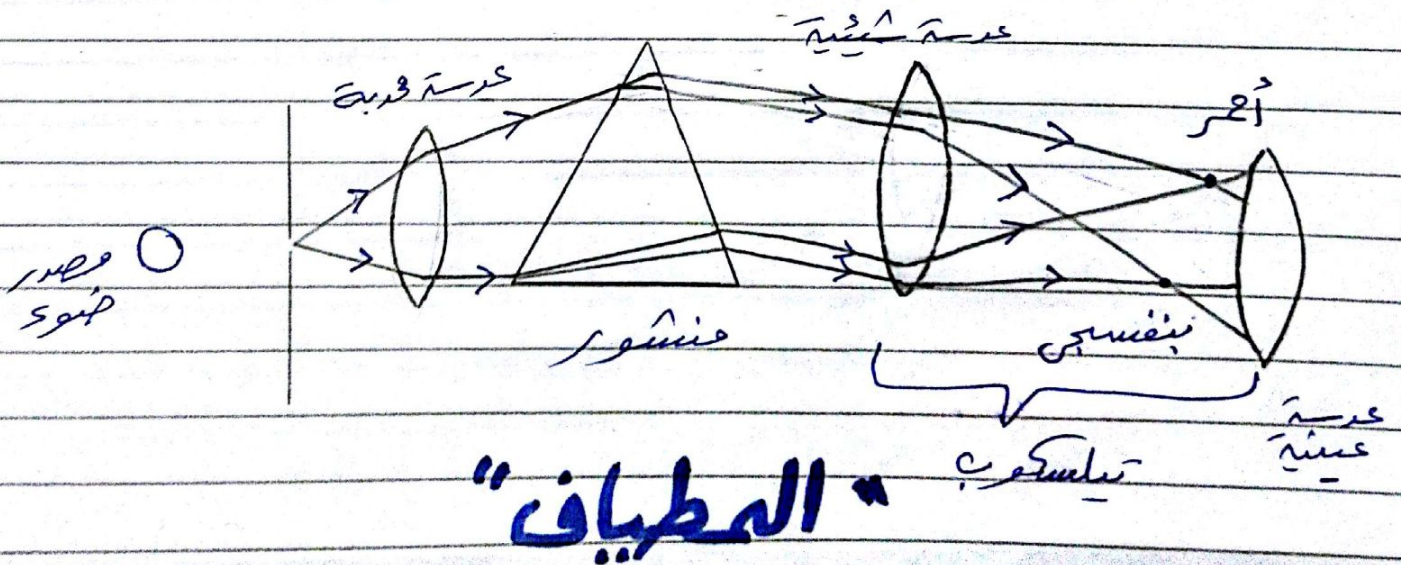 عدسة شيئية
عدسة محدبة
أحمر
مصدر
ضوء
منشور
بنفسجي
عدسة
عينية
تيلسكوب
"المطياف"